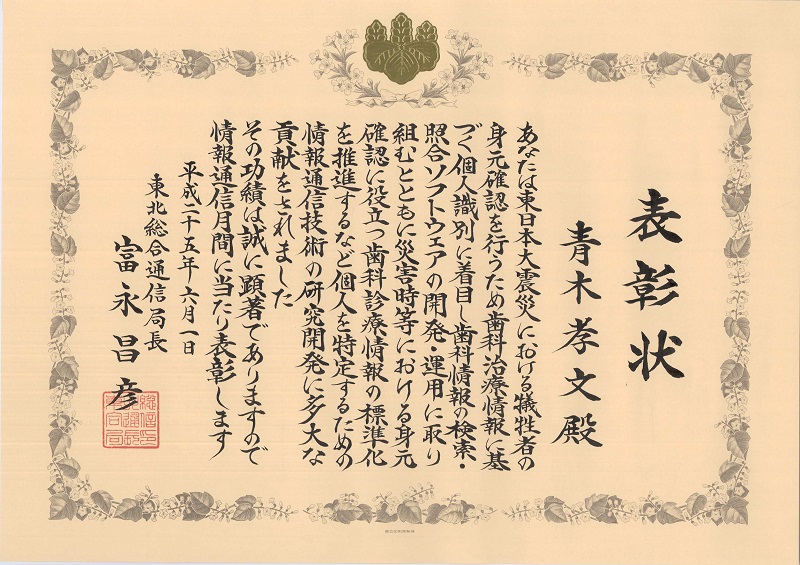 表彰状
青木孝文殿
あなたは東日本大震災における犠牲者の
身元確認を行うため歯科治療情報に基
づく個人識別に着目し歯科情報の検索・
照合ソフトウェアの開発・運用に取り
組むとともに災害時等における身元
確認に役立つ歯科診療情報の標準化
を推進するなど個人を特定するための
情報通信技術の研究開発に多大な
貢献をされました
その功績は誠に顕著でありますので
情報通信月間に当たり表彰します
平成二十五年六月一日
東北総合通信局長
富永昌彦